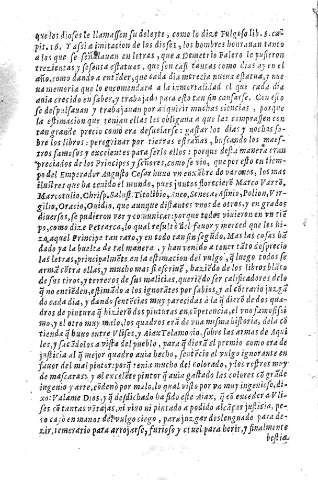 que los dioses se llamassen su deleyte, como lo dize Fulgoso lib. 8. cap.
pit. 16. Y assi a imitacion de los dioses, los hombres honrauan tanto
a los que se señalauan en letras, que a Demetrio Falero le pusieron
trezientas y sesenta estatuas, que son casi tantas como dias ay en el
año, como dando a entẽder, que cada dia merezia nueua estatua, y nue
ua memoria que lo encomendara a la inmortalidad el que cada dia
auia crecido en saber, y trabajado para esto con sin cansarse. Con esto
se despulsauan y trabajauan por adquirir muchas ciencias, porque
la estimacion que tenian ellas los obligaua a que las comprassen con
tan grande precio como era desuelarse: gastar los dias y noches so-
bre los libros: peregrinar por tierras estrañas, buscando los maes-
tros famosos y excelentes para serlo ellos: porque desta manera eran
preciados de los Principes y señores, como se vio, que por esto en tiem-
po del Emperador Augusto Cesar huuo vn enxãbre de varones, los mas
ilustres que ha tenido el mundo, pues juntos florecierõ Marco Varrõ,
Marco Tulio, Salust. Titoliuio, Seneca, Asinio, Polion, Vir-
gilio, Oracio, Ouidio, que aunque distantes vnos de otros, y en grados
diuersos, se pudieron ver y comunicar: porque todos viuieron en vn tiẽ-
po, como dize Petrarca, lo qual resultò del fauor y merced que les hi-
zo, aquel Principe tan raro, y en todo tan sin segũdo. Mas las cosas hã
dado ya la buelta de tal manera, y hã venido a tener tãto desprecio
las letras, principalmẽte en la estimacion del vulgo, q̃ luego todos se
armã cõtra ellas, y mucho mas si escriuẽ, haziẽdo de los libros blãco
de sus tiros, y terrero de sus malicias, queriẽdo ser calificadores de lo
q̃ no entiẽden, estimãdo a los ignorãtes por sabios, y al cõtrario juzgã
do cada dia, y dando sentẽcias muy parecidas à la q̃ dierõ de dos qua-
dros de pintura q̃ hizierõ dos pintores en cõpetencia, el vno famosissi-
mo, y el otro muy malo, los quadros erã de vna misma historia, de la cõ
tienda q̃ huuo entre Vlises, y Aiax Telamonio, sobre las armas de Aqui
les, y sacãdolos a vista del pueblo, para q̃ dierã el premio como era de
justicia al q̃ mejor quadro auia hecho, sentẽciò el vulgo ignorante en
fauor del mal pintor: porq̃ tenia mucho del colorado, y los rostros muy
de mascaras, y al excelẽte pintor q̃ auia gastado las colores cõ grãde
ingenio y arte, condenò por malo, lo qual visto por vn muy ingenioso, di-
xo: Valame Dios, y q̃ desdichado ha sido este Aiax, q̃ cõ exceder a Vli-
ses cõ tantas vẽtajas, ni viuo ni pintado a podido alcãçar justicia, pe-
so cayò en manos del vulgo ciego, para juzgar deslenguado para de-
zir, temerario para arrojarse, furioso y cruel para herir, y finalmente
bestia